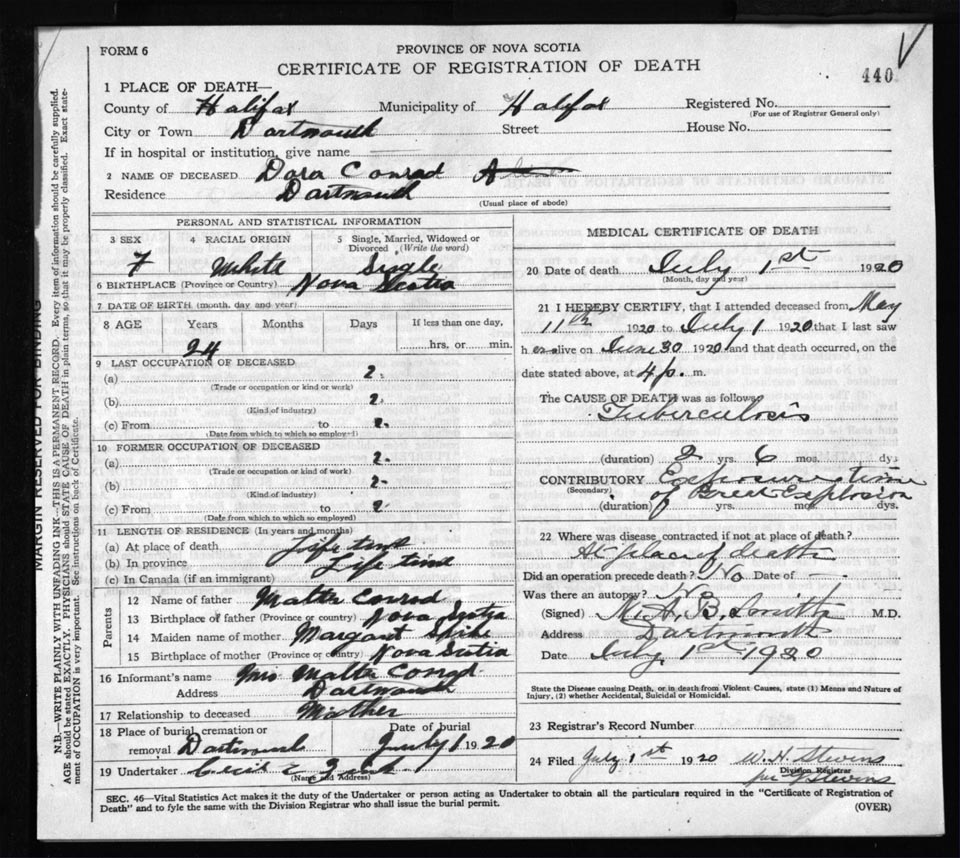 FORM 6
PROVINCE OF NOVA SCOTIA
CERTIFICATE OF REGISTRATION OF DEATH
440
1 PLACE OF DEATH—
County of Halifax Municipality of Halifax Registered No.
(For use of Registrar General only)
City or Town Dartmouth Street House No.
If in hospital or institution, give name
2 NAME OF DECEASED Dora Conrad
Residence Dartmouth
(Usual place of abode)
PERSONAL AND STATISTICAL INFORMATION
3 SEX 4 RACIAL ORIGIN 5 Single, Married, Widowed or Divorced (Write the word)
F White Single
6 BIRTHPLACE (Province or Country) Nova Scotia
7 DATE OF BIRTH (month, day and year)
8 AGE Years Months Days If less than one day,
24 hrs. or min.
9 LAST OCCUPATION OF DECEASED
(a) 2.
(Trade or occupation or kind or work)
(b) 2.
(Kind of industry)
(c) From to 2.
(Date from which to which so employed)
10 FORMER OCCUPATION OF DECEASED
(a) 2.
(Trade or occupation or kind of work)
(b) 2.
(Kind of industry)
(c) From to 2
(Date from which to which so employed)
11 LENGTH OF RESIDENCE (In years and months)
(a) At place of death Life time
(b) In province Life time
(c) In Canada (if an immigrant)
Parents
12 Name of father Walter Conrod
13 Birthplace of father (Province or country) Nova Scotia
14 Maiden name of mother Margaret
15 Birthplace of mother (Province or country) Nova Scotia
16 Informant's name Mrs Walter Conrod
Address Dartmouth
17 Relationship to deceased Mother
18 Place of burial, cremation or removal Dartmouth Date of burial July 1 1920
19 Undertaker Cecil E Zink
(Name and Address)
MEDICAL CERTIFICATE OF DEATH
20 Date of death July 1st 1920
(Month, day and year)
21 I HEREBY CERTIFY, that I attended deceased from May
11th 1920 to July 1 1920 that I last saw
h er alive on June 30 1920 and that death occurred, on the
date stated above, at 4 p. m.
The CAUSE OF DEATH was as follows
Tuberculosis
(duration) 2 yrs. 6 mos. dys
CONTRIBUTORY Exposure time
(Secondary) of Great Explosion
(duration) yrs. mos. dys.
22 Where was disease contracted if not at place of death?
At place of death
Did an operation precede death? No Date of —
Was there an autopsy? No
(Signed) M. A. B. Smith M.D.
Address Dartmouth
Date July, 1st 1920
State the Disease causing Death, or in death from Violent Causes, state (1) Means and Nature of
Injury, (2) whether Accidental, Suicidal or Homicidal.
23 Registrar's Record Number
24 Filed July 1st 1920 W. H. Stevens
Division Registrar
Stevens
SEC. 46—Vital Statistics Act makes it the duty of the Undertaker or person acting as Undertaker to obtain all the particulars required in the "Certificate of Registration of
Death" and to fyle the same with the Division Registrar who shall issue the burial permit. (OVER)
MARGIN RESERVED FOR BINDING
N.B.—WRITE PLAINLY WITH UNFADING INK—THIS IS A PERMANENT RECORD. Every item of information should be carefully supplied.
AGE should be stated EXACTLY. PHYSICIANS should STATE CAUSE OF DEATH in plain terms, so that it may be properly classified. Exact state-
ment of OCCUPATION is very important. See instructions on back of Certificate.